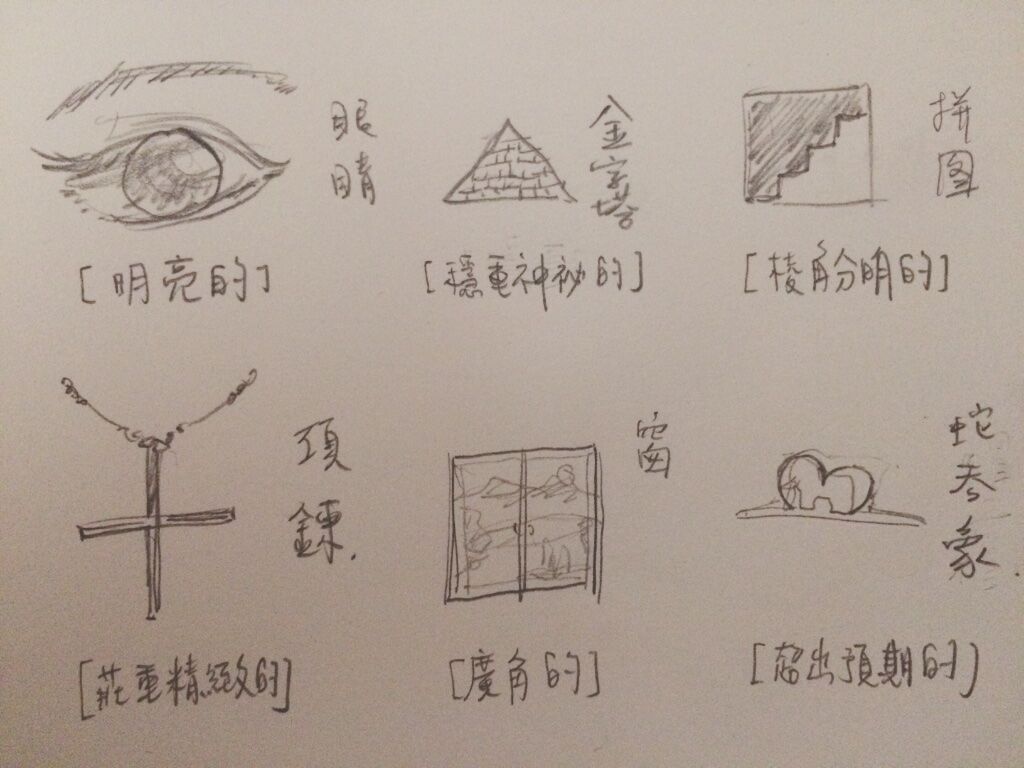 眼睛
金字塔
拼图
[明亮的]
[穩重神祕的]
[棱角分明的]
項鍊.
窗
蛇吞象.
[莊重精緻的]
[廣角的]
[超出預期的]